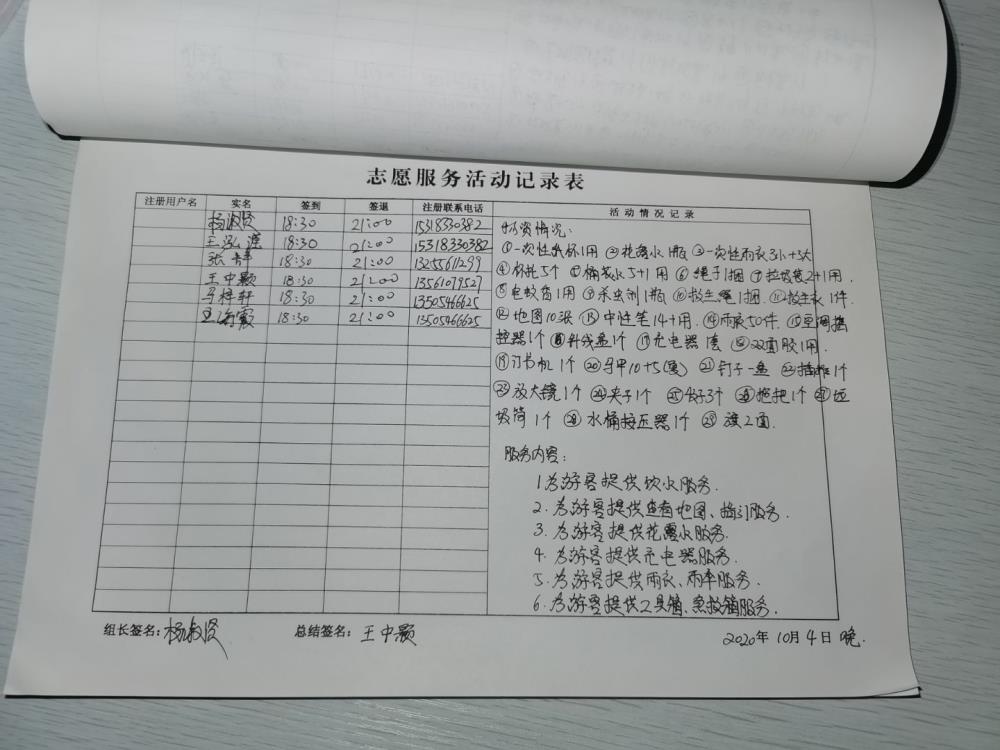 志愿服务活动记录表
注册用户名 实名 签到 签退 注册联系电话 活动情况记录
杨淑贤 18:30 21:00 15318330382
王泓 18:30 21:00 15318330382
张 18:30 21:00 13255611299
王中颢 18:30 21:00 13561079527
马梓轩 18:30 21:00 13505466625
18:30 21:00 13505466625
物资情况:
①一次性纸杯1用 ②花露水1瓶 ③一次性雨衣3小+3大
④杯托5个 ⑤桶装水5+1用 ⑥绳子1捆 ⑦垃圾袋2+1用
⑧电蚊香1用 ⑨杀虫剂1瓶 ⑩救生绳1捆 ⑪救生衣1件
⑫地图10张 ⑬中性笔14+用 ⑭雨衣50件 ⑮空调摇
控器1个 ⑯针线盒1个 ⑰充电器1套 ⑱双面胶1用
⑲订书机1个 ⑳马甲10+5(薄) ㉑钉子一盒 ㉒插排1个
㉓放大镜1个 ㉔夹子1个 ㉕ 3个 ㉖拖把1个 ㉗垃
圾筒1个 ㉘水桶按压器1个 ㉙旗2面.
服务内容:
1.为游客提供饮水服务.
2.为游客提供查看地图、指引服务.
3.为游客提供花露水服务.
4.为游客提供充电器服务.
5.为游客提供雨衣、雨伞服务.
6.为游客提供工具箱、急救箱服务.
组长签名:杨淑贤 总结签名:王中颢 2020年10月4日 晚.